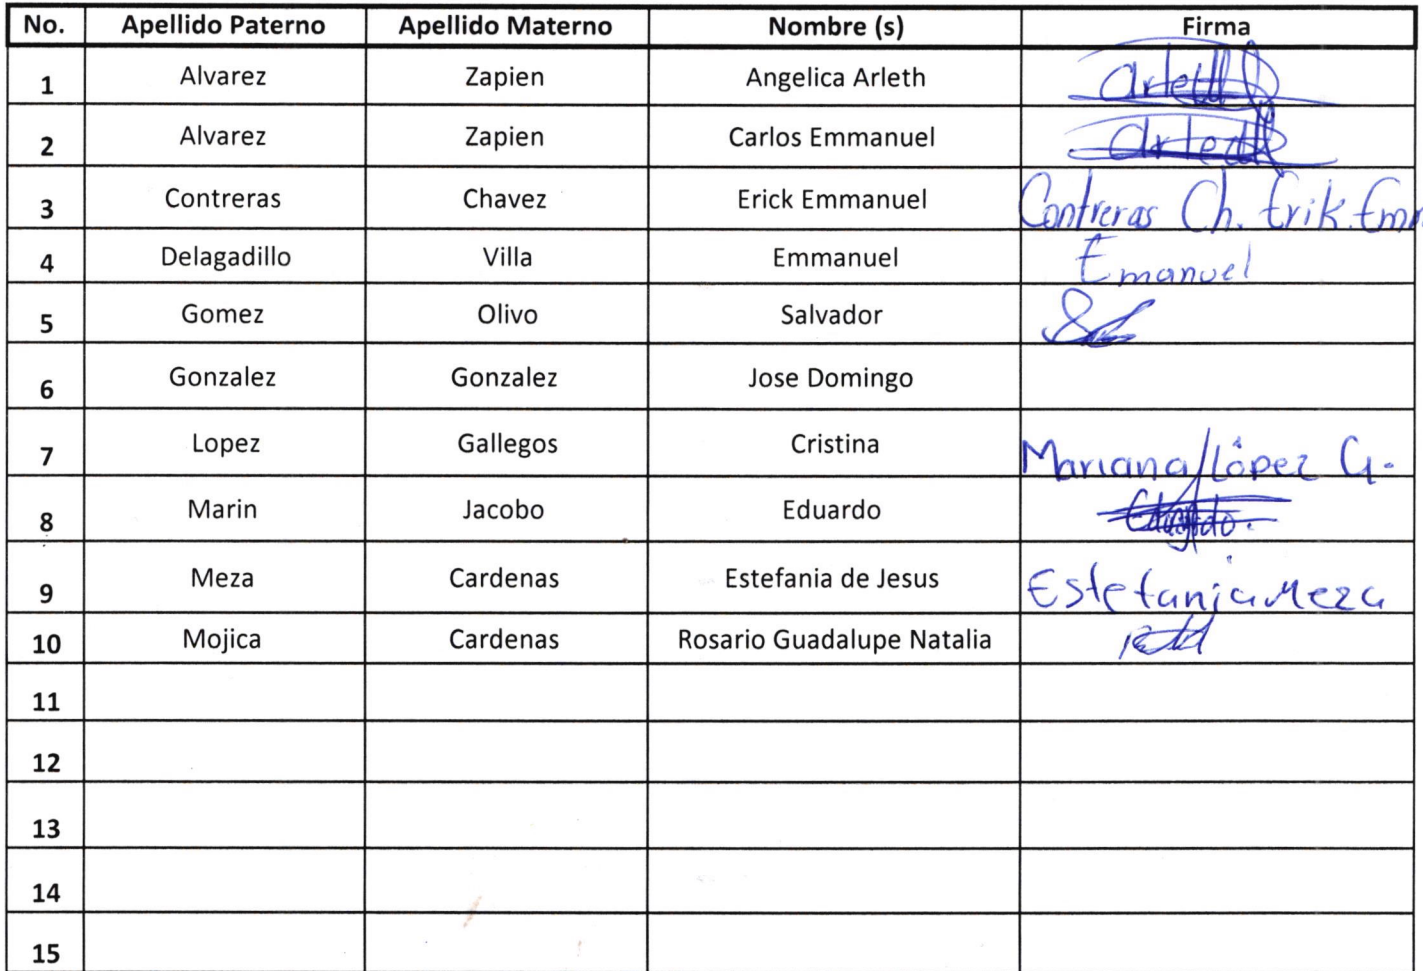 No. Apellido Paterno Apellido Materno Nombre (s) Firma
1 Alvarez Zapien Angelica Arleth Arleth
2 Alvarez Zapien Carlos Emmanuel Arleth
3 Contreras Chavez Erick Emmanuel Contreras Ch. Erik. Emm
4 Delagadillo Villa Emmanuel Emanuel
5 Gomez Olivo Salvador
6 Gonzalez Gonzalez Jose Domingo
7 Lopez Gallegos Cristina Mariana López G.
8 Marin Jacobo Eduardo
9 Meza Cardenas Estefania de Jesus Estefania Meza
10 Mojica Cardenas Rosario Guadalupe Natalia
11
12
13
14
15